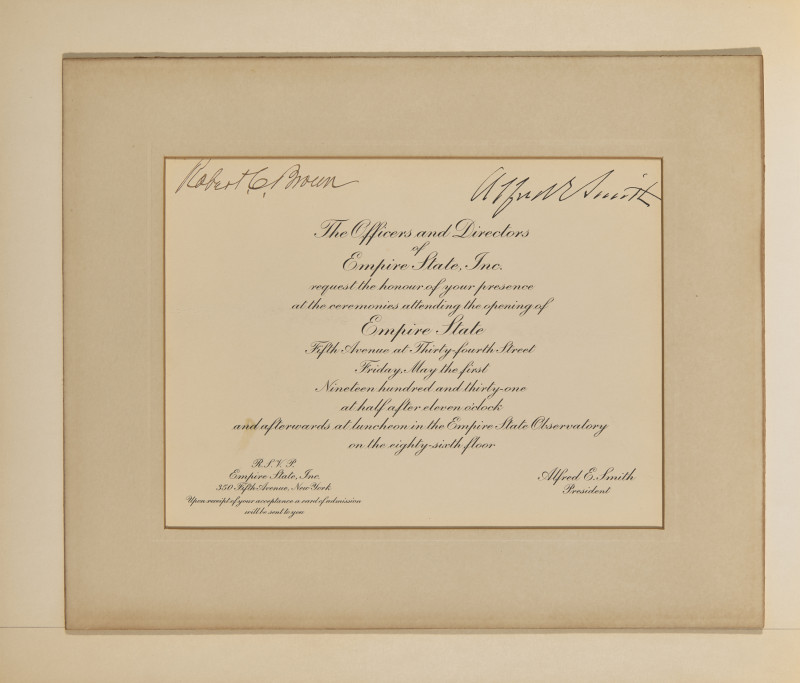 Robert C. Brown
Alfred E Smith
The Officers and Directors
of
Empire State, Inc.
request the honour of your presence
at the ceremonies attending the opening of
Empire State
Fifth Avenue at Thirty-fourth Street
Friday, May the first
Nineteen hundred and thirty-one
at half after eleven o'clock
and afterwards at luncheon in the Empire State Observatory
on the eighty-sixth floor
R.S.V.P.
Empire State, Inc.
350 Fifth Avenue, New York
Upon receipt of your acceptance a card of admission
will be sent to you
Alfred E. Smith
President